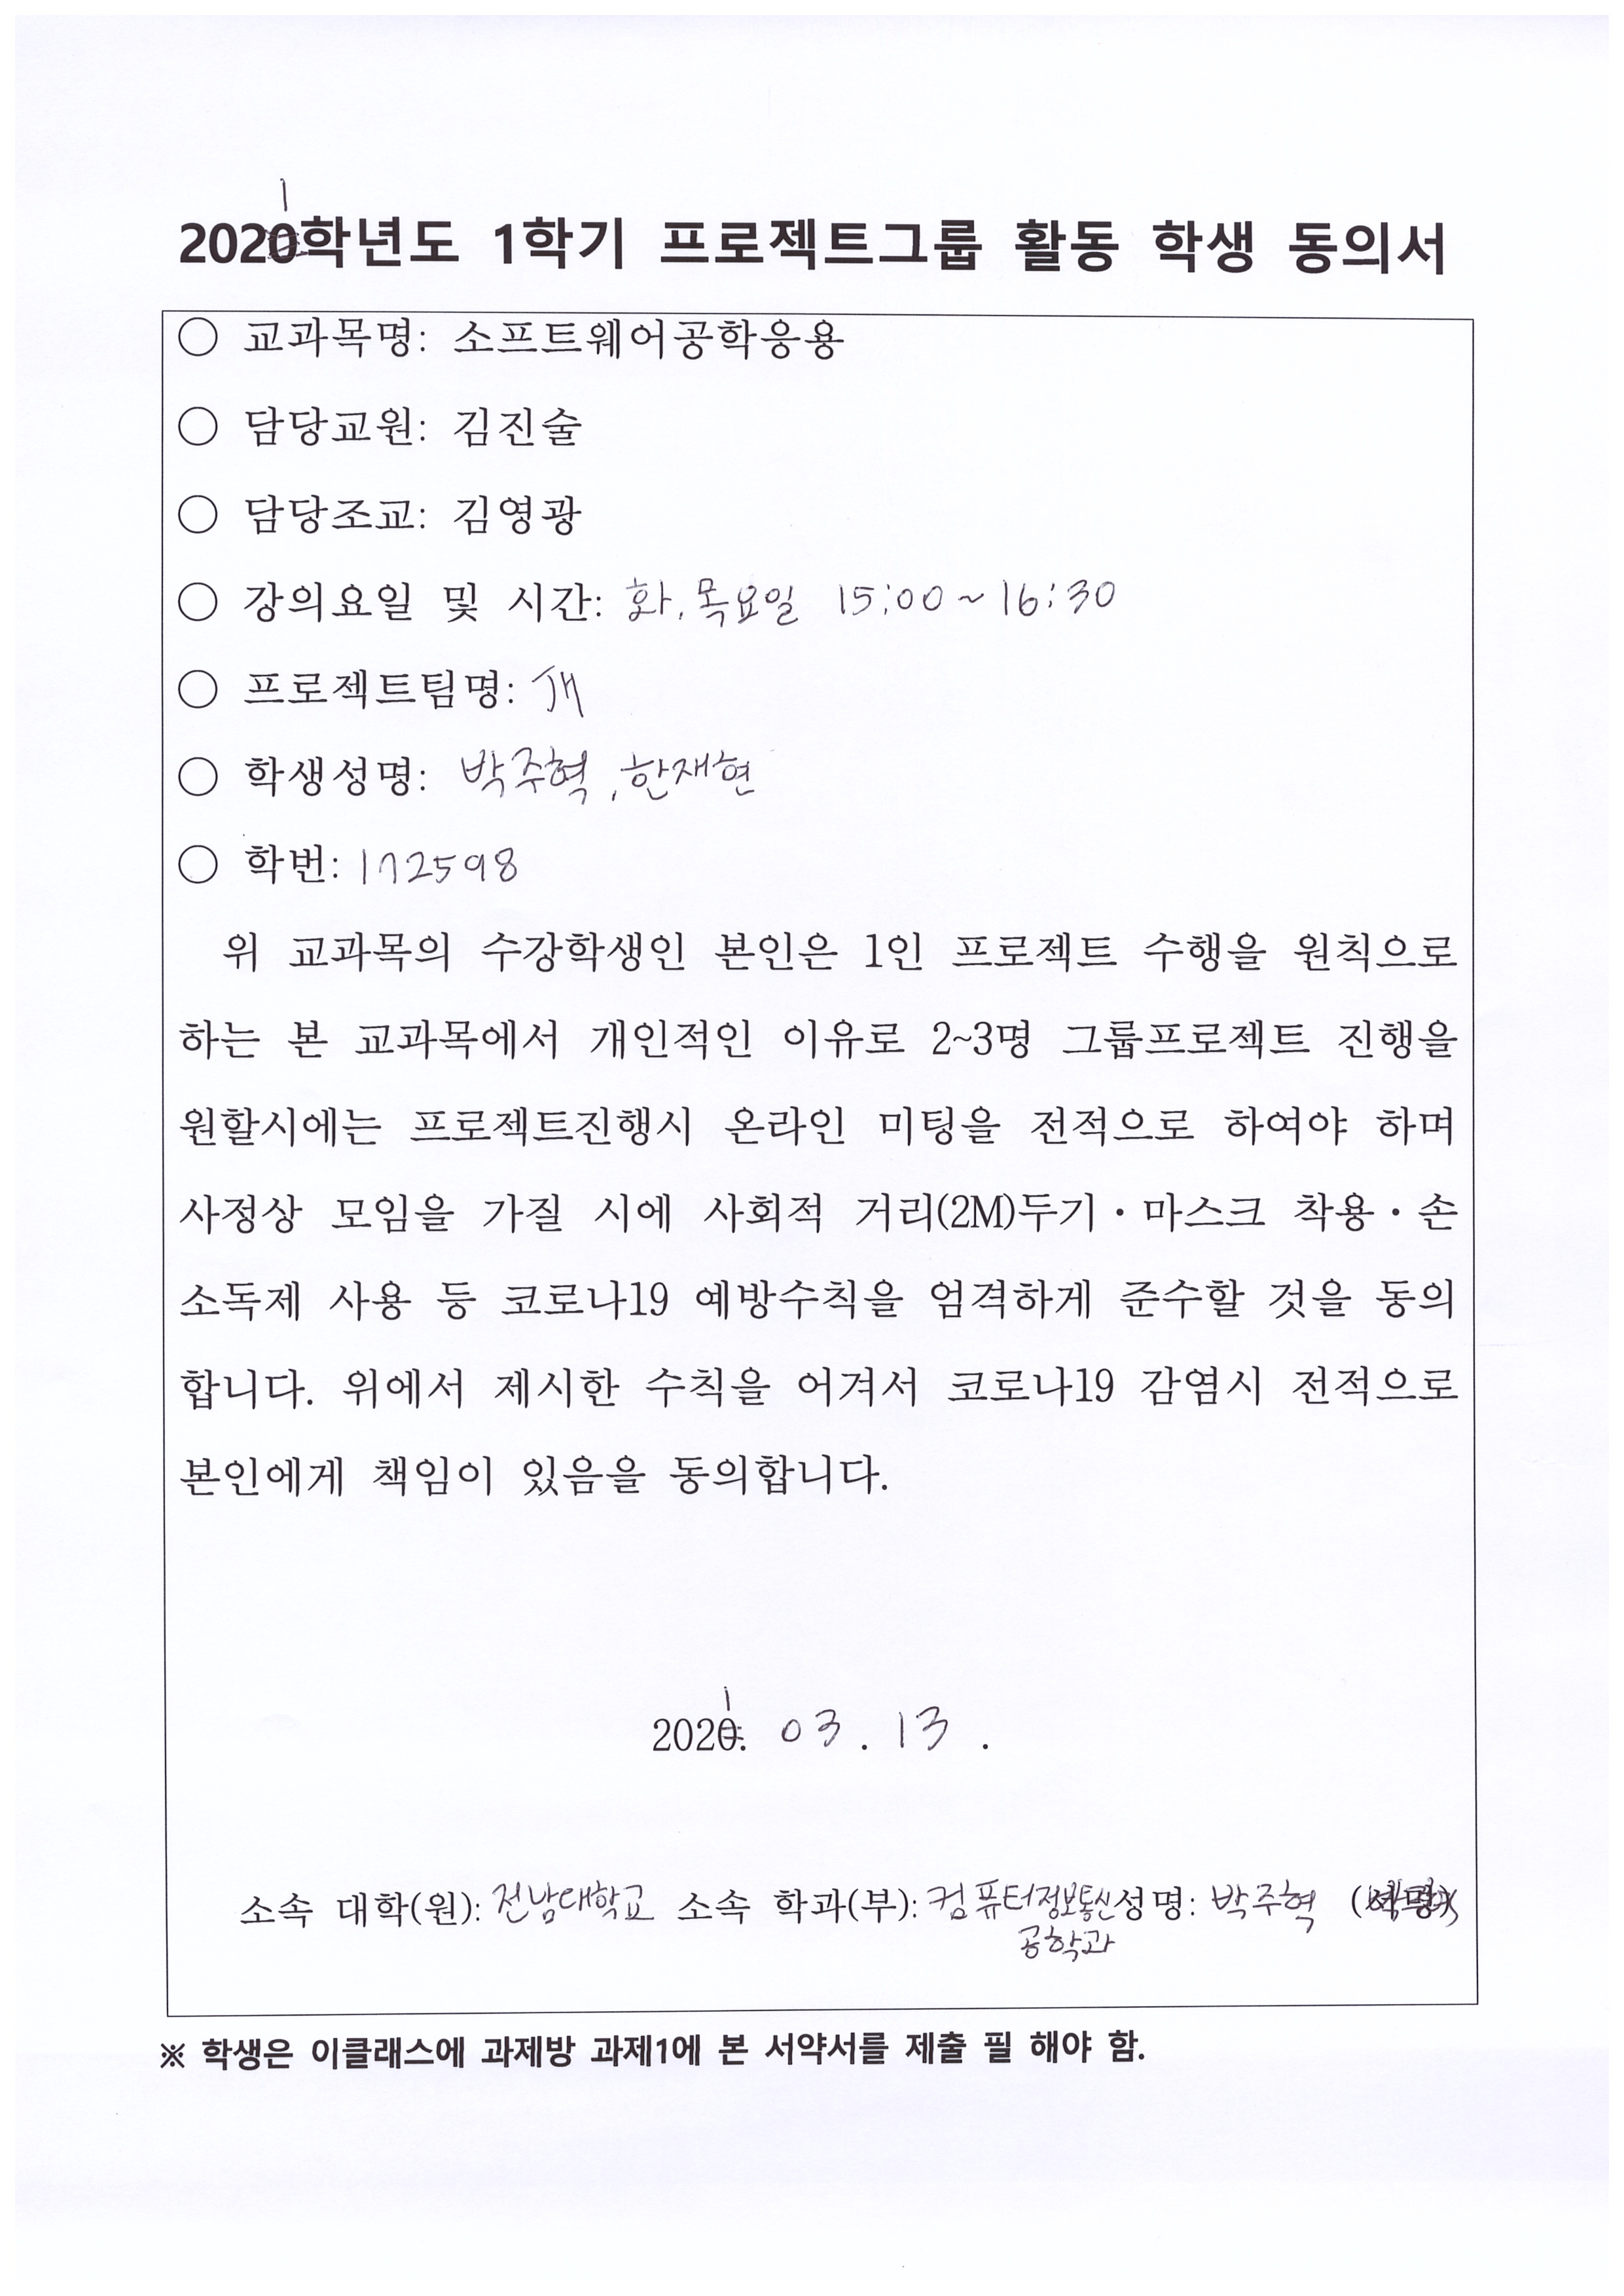 1
2020학년도 1학기 프로젝트그룹 활동 학생 동의서
○ 교과목명: 소프트웨어공학응용
○ 담당교원: 김진술
○ 담당조교: 김영광
○ 강의요일 및 시간: 화, 목요일 15:00 ~ 16:30
○ 프로젝트팀명:
○ 학생성명: 박주혁, 한재현
○ 학번: 172598
위 교과목의 수강학생인 본인은 1인 프로젝트 수행을 원칙으로
하는 본 교과목에서 개인적인 이유로 2~3명 그룹프로젝트 진행을
원할시에는 프로젝트진행시 온라인 미팅을 전적으로 하여야 하며
사정상 모임을 가질 시에 사회적 거리(2M)두기・마스크 착용・손
소독제 사용 등 코로나19 예방수칙을 엄격하게 준수할 것을 동의
합니다. 위에서 제시한 수칙을 어겨서 코로나19 감염시 전적으로
본인에게 책임이 있음을 동의합니다.
1
2020. 03. 13 .
소속 대학(원): 전남대학교 소속 학과(부): 컴퓨터정보통신 성명: 박주혁 (서명)
공학과
※ 학생은 이클래스에 과제방 과제1에 본 서약서를 제출 필 해야 함.